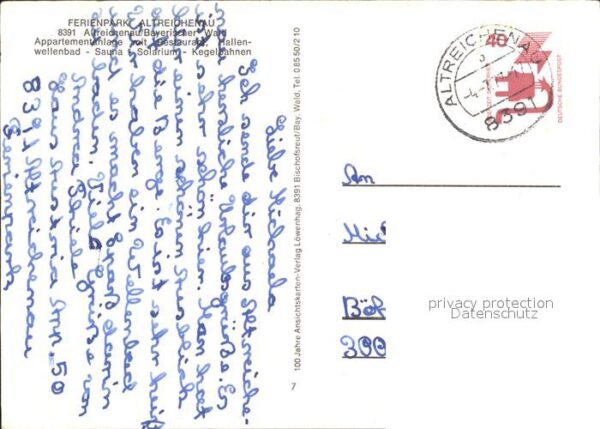 FERIENPARK ALTREICHENAU
8391 Altreichenau/Bayerischer Wald
Appartementanlage mit Restaurant, Hallen-
wellenbad - Sauna - Solarium - Kegelbahnen
Liebe Michaela
Ich sende dir aus Altreiche-
nau herzliche Urlaubsgrüße. Es
ist sehr schön hier. Man hat
hier einen schönen Ausblick
in die Berge. Es ist sehr heiß
Wir haben ein Wellenbad
und es macht Spaß darin
baden. Viele Grüße von
8391 Altreichenau
Ferienpark
100 Jahre Ansichtskarten-Verlag Löwenhag, 8391 Bischofsreut/Bay. Wald, Tel. 0 85 50/2 10
7
ALTREICHENAU
8391
40
DEUTSCHE BUNDESPOST
An
Mic
Böt
300
privacy protection
Datenschutz